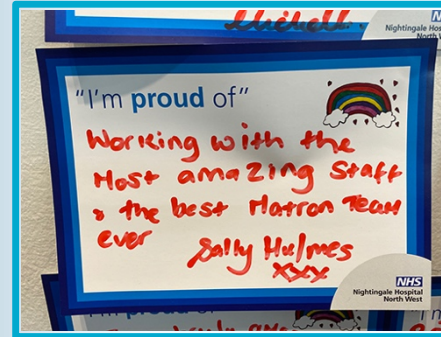 Michell
NHS
Nightingale Hos
North W
"I'm proud of"
Working with the
Most amazing Staff
& the best Matron Team
ever
Sally Hulmes
xxx
NHS
Nightingale Hospital
North West